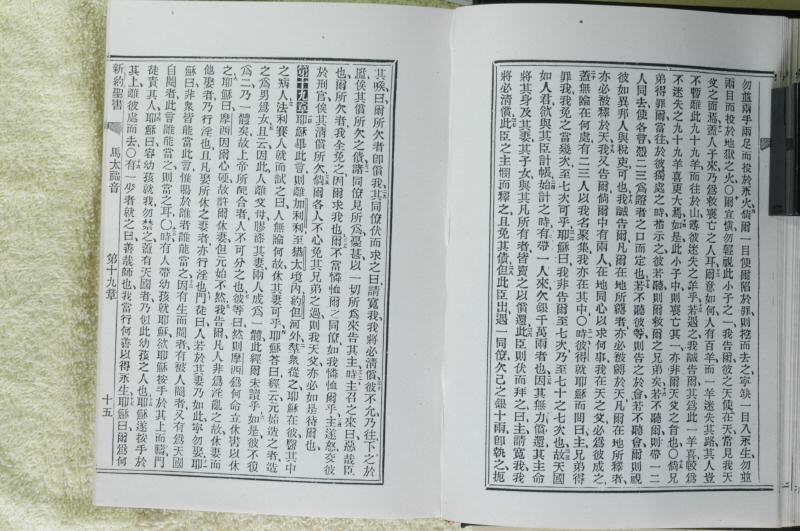 勿並兩手兩足而投於永火倘爾一目使爾陷於罪則挖而去之寧缺一目入永生勿並
兩目而投於地獄之火〇爾宜愼勿輕視此小子之一我告爾彼之天使在天常見我天
父之面焉蓋人子來乃爲救喪亡之人耳爾意如何人有百羊而一羊迷失其路其人豈
不暫離此九十九羊而往於山尋彼迷失之羊乎若遇之我誠告爾其爲此一羊喜較爲
不迷失之九十九羊喜更大焉如是此小子中則喪亡其一亦非爾天父之旨也〇倘兄
弟得罪爾當往於彼獨處之時指示之彼若聽則爾救爾之兄弟矣若不聽爾則帶一二
人同去使各言憑二三爲證者之口而定也若不聽彼等則告之於會若不聽會爾則視
彼如異邦人與稅吏可也我誠告爾凡爾在地所縛者亦必被縛於天凡爾在地所釋者
亦必被釋於天我又告爾倘爾中有兩人在地同心以求何事我在天之父必爲彼成之
蓋無論在何處有二三人以我名聚集我亦在其中〇時彼得就耶穌而問曰主兄弟得
罪我我免之當幾次至七次可乎耶穌曰我非告爾至七次乃至七十之七次也故天國
如人君欲與其臣計帳始計之時有帶一人來欠銀千萬兩者也因其無力償還其主命
將其身及其妻其子女與其凡所有者皆賣之以償還此臣則伏而拜之曰主請寬我我
將必淸償此臣之主憫而釋之且免其債但此臣出遇一同僚欠己之銀十兩卽執之扼
其喉曰爾所欠者卽償我其同僚伏而求之曰請寬我我將必淸償彼不允乃往下之於
監俟其償所欠之債其同僚見所爲憂甚以一切所爲來告其主時主召之來曰惡哉臣
也爾所欠者我全免之因爾求我也爾不當憐恤爾之同僚如我憐恤爾乎主遂怒交彼
於刑官俟其淸償所欠倘爾各人不心免其兄弟之過則我天父亦必如是待爾也
第十九章耶穌畢此言則離加利利至猶太境內約但河外羣衆從之耶穌在彼醫其中
之病人法利賽人就而試之曰人無論何故休其妻可乎耶穌答曰經云元始造之者造
之爲男爲女且云因此人離父母膠漆其妻兩人成爲一體此經爾未讀乎如是彼不復
爲二乃一體矣故上帝所配合者人不可分之也彼等曰然則摩西爲何命立休書以休
之耶穌曰摩西因爾心硬故許爾休妻但元始不然我告爾凡人非爲淫亂之故休妻而
他娶者乃行淫也且凡娶所休之妻者亦行淫也門徒曰人若於其妻乃如此寧勿娶耶
穌曰非衆皆能當此言惟賜於誰者誰能當之因有生而閹者有被人閹者又有爲天國
自閹者此言誰能當之則當之耳〇時有人帶幼孩就耶穌欲耶穌按手於其上而禱門
徒責其人耶穌曰容幼孩就我勿禁之蓋有天國者乃似此幼孩之人也耶穌遂按手於
其上離彼處而去〇有一少者就之曰善哉師也我當行何善以得永生耶穌曰爾爲何
新約聖書　馬太福音　第十九章　十五